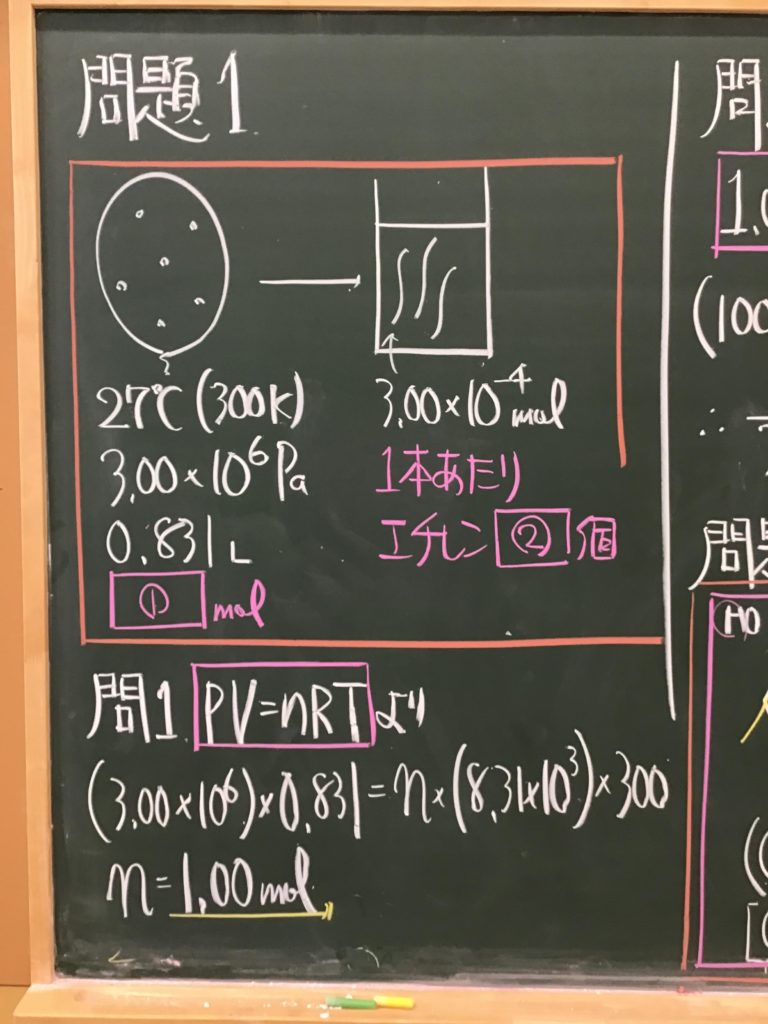 問題1
27℃(300K)
3.00×10⁶Pa
0.831L
① mol
3.00×10⁻⁴mol
1本あたり
エチレン②個
問1 PV=nRTより
(3.00×10⁶)×0.831=n×(8.31×10³)×300
n=1.00mol
問
1.0
(100
∴
問題
HO